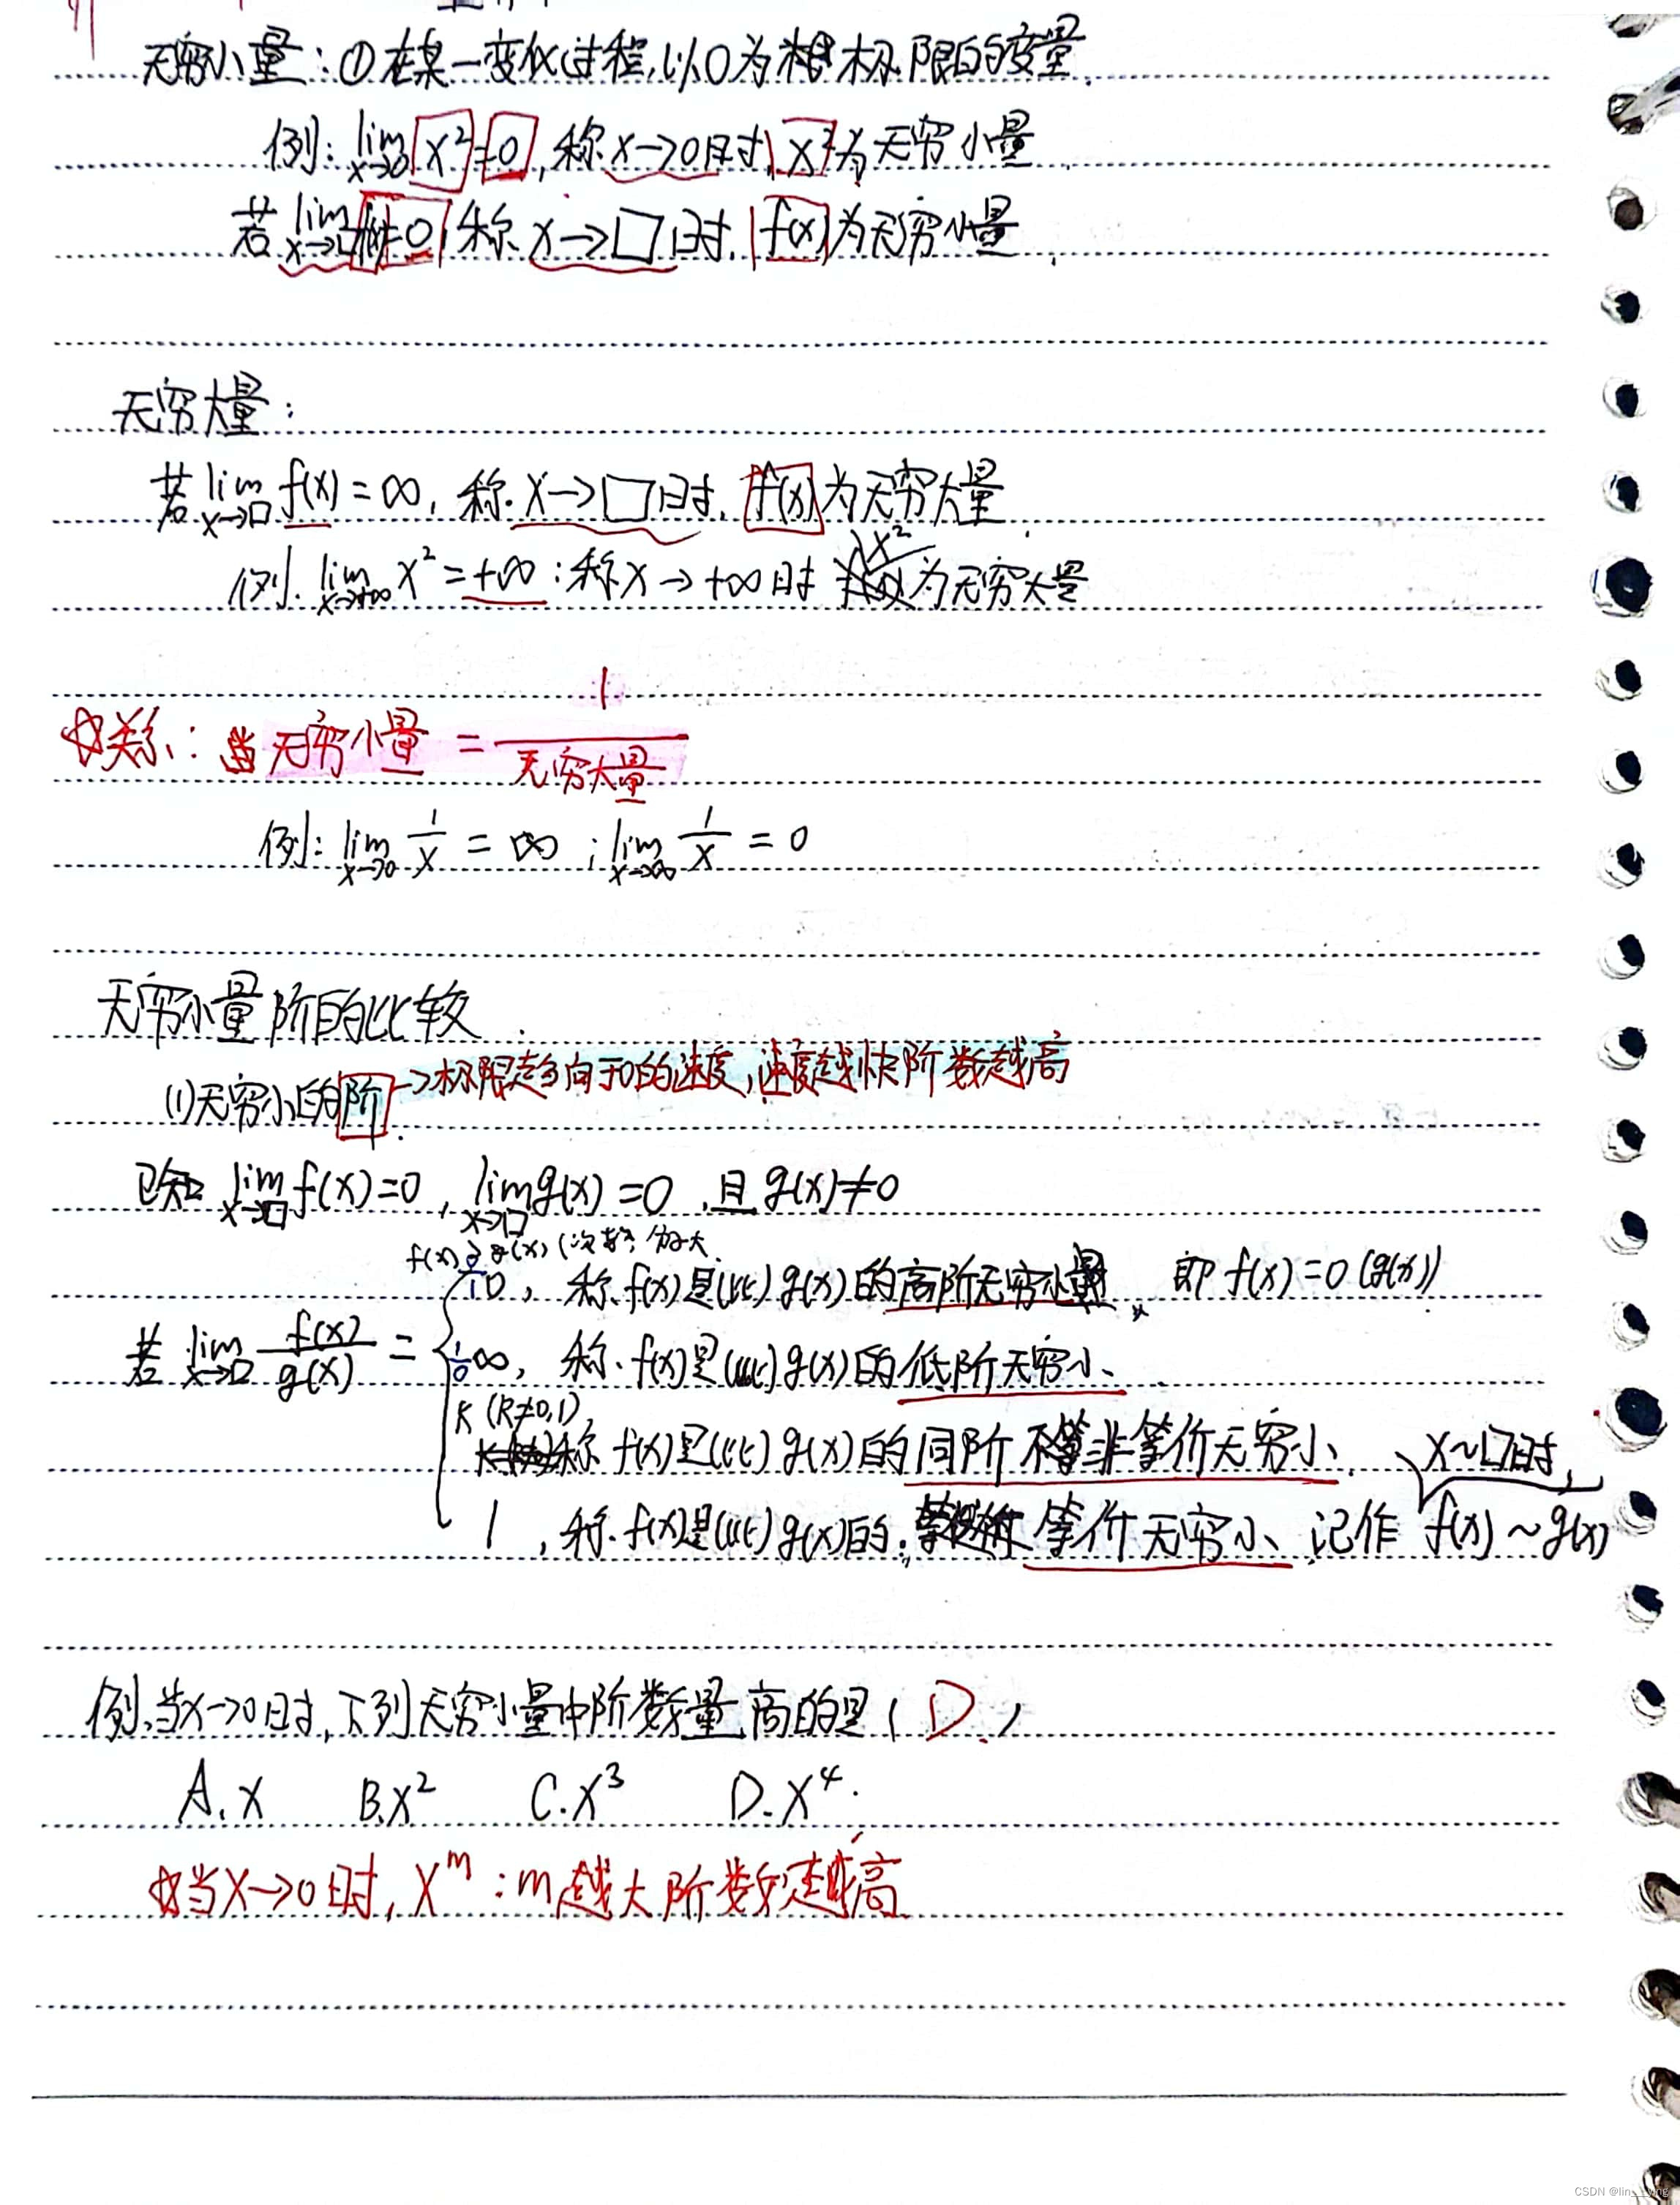 无穷小量：①在某一变化过程，以0为极限的变量.
例：lim x→0 x²=0，称x→0时，x²为无穷小量
若 lim x→□ f(x)=0，称 x→□时，f(x)为无穷小量.
无穷大量：
若 lim x→□ f(x)=∞，称 x→□时，f(x)为无穷大量.
例. lim x→+∞ x²=+∞：称x→+∞时 x²为无穷大量
☆关系：无穷小量 = 1/无穷大量
例：lim x→0 1/x = ∞；lim x→∞ 1/x = 0
无穷小量阶的比较.
(1)无穷小的阶→极限趋向于0的速度，速度越快阶数越高
已知 lim x→□ f(x)=0，lim x→□ g(x)=0，且 g(x)≠0
f(x) g(x)
0，称 f(x)是(比) g(x)的高阶无穷小量，即 f(x)=0(g(x))
若 lim x→□ f(x)/g(x) = { ∞，称 f(x)是(比)g(x)的低阶无穷小
K (K≠0,1)，称 f(x)是(比) g(x)的同阶非等价无穷小. x~□时，
1，称 f(x)是(比)g(x)的等价无穷小，记作 f(x)~g(x)
例，当x→0时，下列无穷小量中阶数量高的是（D）
A. x B. x² C. x³ D. x⁴.
☆当x→0时，xᵐ：m越大阶数越高
CSDN